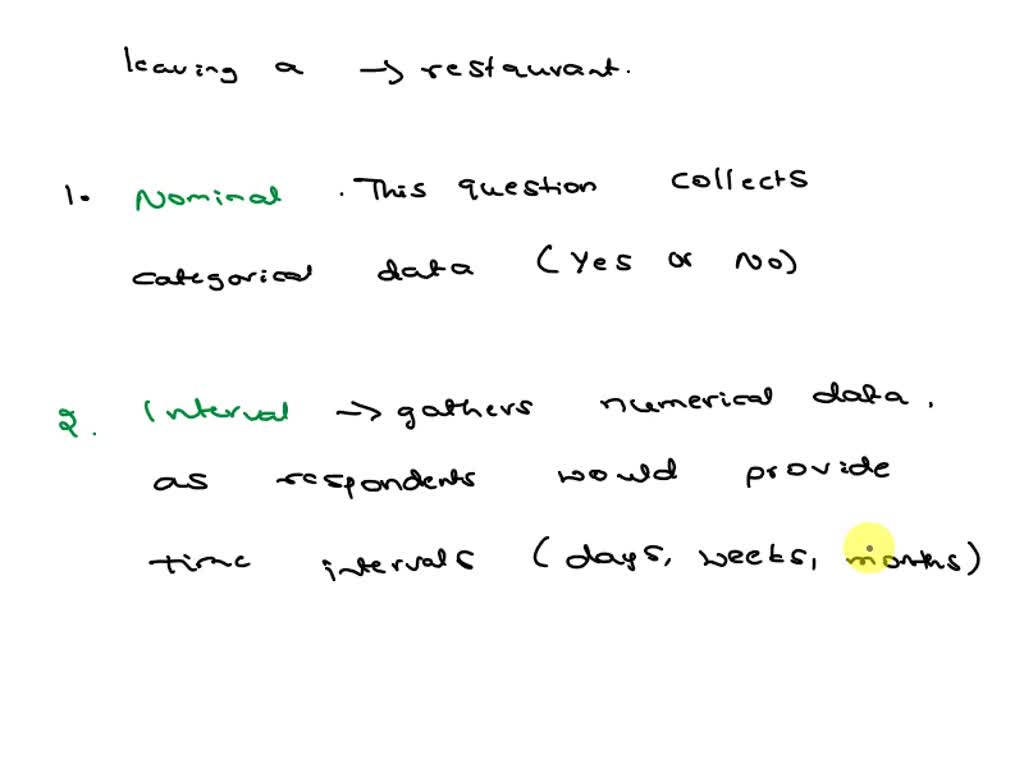 leaving a → restaurant.
1. Nominal . This question collects
categorical data (Yes or No)
2. Interval → gathers numerical data.
as respondents would provide
time intervals (days, weeks, months)